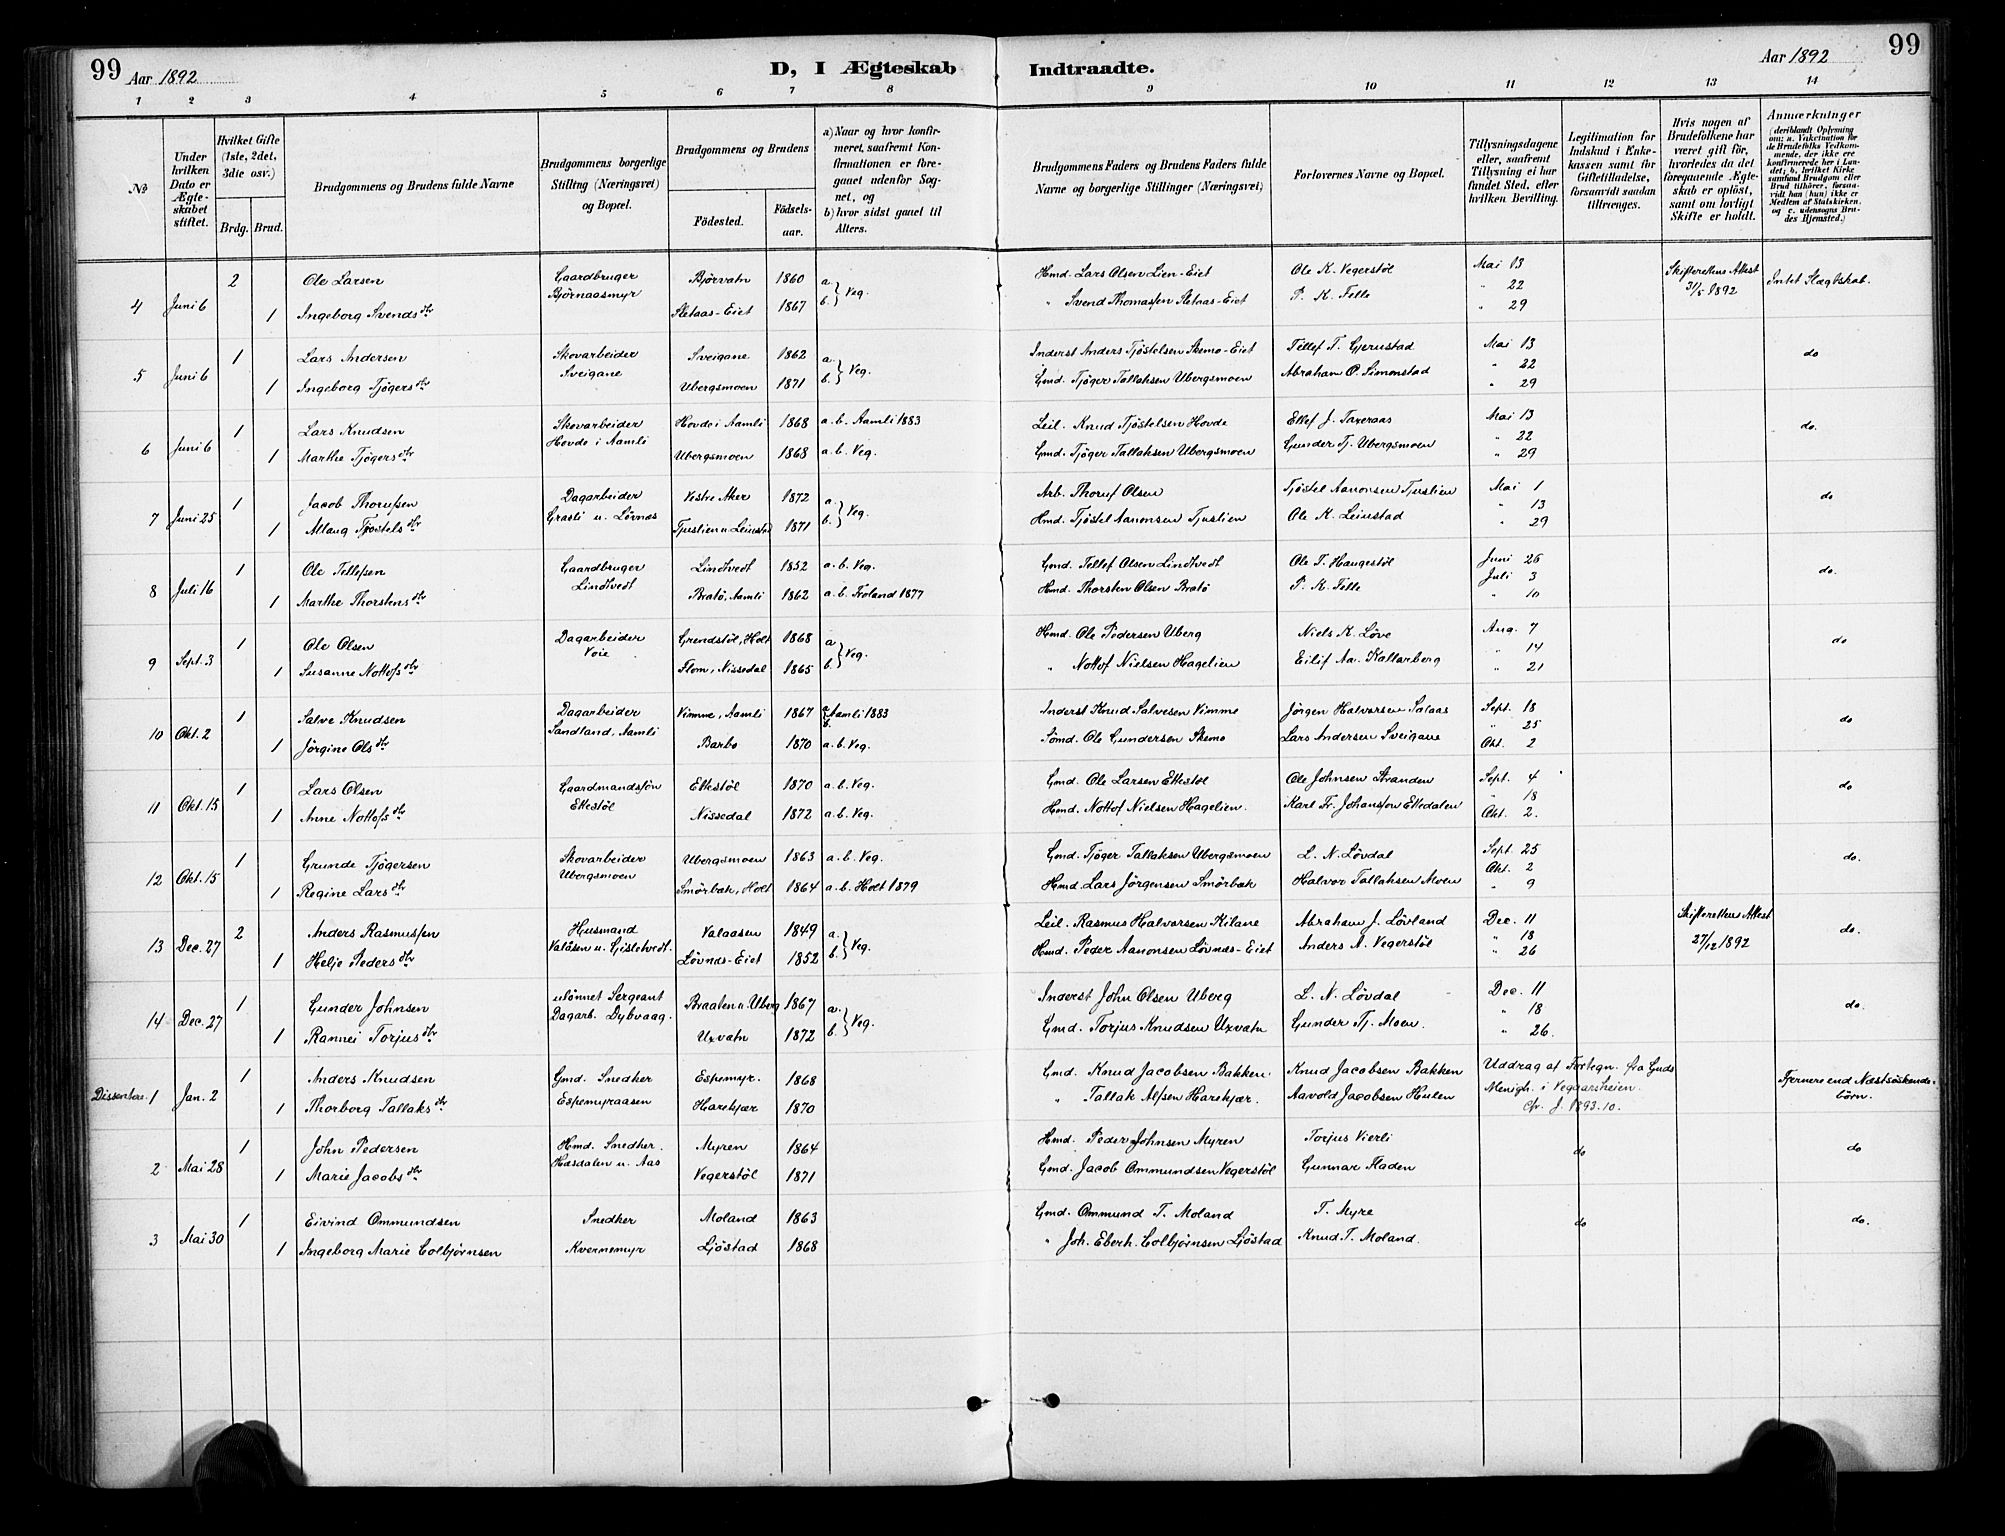 99 Aar 1892 D, I Ægteskab Indtraadte. Aar 1892 99
1 2 3 4 5 6 7 8 9 10 11 12 13 14
№
Under hvilken Dato er Ægteskabet stiftet.
Hvilket Gifte (1ste, 2det, 3die osv.)
Brdg. Brud.
Brudgommens og Brudens fulde Navne
Brudgommens borgerlige Stilling (Næringsvei) og Bopæl.
Brudgommens og Brudens
Födested. Födsels-aar.
a) Naar og hvor konfirmeret, saafremt Konfirmationen er foregaaet udenfor Sognet, og
b) hvor sidst gaaet til Alters.
Brudgommens Faders og Brudens Faders fulde Navne og borgerlige Stillinger (Næringsvei)
Forlovernes Navne og Bopæl.
Tillysningsdagene eller, saafremt Tillysning ei har fundet Sted, efter hvilken Bevilling.
Legitimation for Indskud i Enkekassen samt for Giftetilladelse, forsaavidt saadan tiltrænges.
Hvis nogen af Brudefolkene har været gift før, hvorledes da det foregaaende Ægteskab er oplöst, samt om lovligt Skifte er holdt.
Anmærkninger (deriblandt Oplysning om: a. Vakcination for de Brudefolks Vedkommende, der ikke ere konfirmerede her i Landet; b. hvilket Kirkesamfund Brudgom eller Brud tilhörer, forsaavidt han (hun) ikke er Medlem af Statskirken, og c. udensogns Brudes Hjemsted.)
4 Juni 6 2 Ole Larsen Gaardbruger Björnaasmyr Björvatn 1860 a. b. } Veg. Hmd. Lars Olsen Lien-Eiet Ole K. Vegerstöl Mai 13 Skifterettens Attest 31/5 1892 Intet Slægtskab.
1 Ingeborg Svendsdtr Sletaas-Eiet 1867 " Svend Thomassen Sletaas-Eiet P. K. Felle " 22 " 29
5 Juni 6 1 Lars Andersen Skovarbeider Sveigane Sveigane 1862 a. b. } Veg. Inderst Anders Tjöstelsen Skemo-Eiet Tellef T. Gjerustad Mai 13 do
1 Ingeborg Tjögersdtr Ubergsmoen 1871 Gmd. Tjöger Tallaksen Ubergsmoen Abraham O. Simonstad " 22 " 29
6 Juni 6 1 Lars Knudsen Skovarbeider Hovde i Aamli Hovde i Aamli 1868 a. b. Aamli 1883 Leil. Knud Tjöstelsen Hovde Ellef J. Taxeraas Mai 13 do.
1 Marthe Tjögersdtr Ubergsmoen 1868 a. b. Veg. Gmd. Tjöger Tallaksen Ubergsmoen Gunder Tj. Ubergsmoen " 22 " 29
7 Juni 25 1 Jacob Thorufsen Dagarbeider Grasli u. Lövnæs Vestre Aker 1872 a. b. } Veg. Arb. Thoruf Olsen Tjöstel Aanonsen Tjuslien Mai 1 do
1 Aslaug Tjöstelsdtr Tjuslien u. Leiustad 1871 Hmd. Tjöstel Aanonsen Tjuslien Ole K. Leiustad " 13 " 29
8 Juli 16 1 Ole Tellefsen Gaardbruger Lindtvedt Lindtvedt 1852 a. b. Veg. Gmd. Tellef Olsen Lindtvedt Ole T. Haugestöl Juni 26 do.
1 Marthe Thorstensdtr Bratö, Aamli 1862 a. b. Froland 1877 Hmd. Thorsten Olsen Bratö P. K. Felle Juli 3 " 10
9 Sept. 3 1 Ole Olsen Dagarbeider Voie Grendstöl, Holt 1868 a. b. } Veg. Hmd. Ole Pedersen Uberg Niels K. Löve Aug. 7 do
1 Susanne Nottofsdtr Flom, Nissedal 1865 " Nottof Nielsen Hagelien Eilif Aa. Kallarberg " 14 " 21
10 Okt. 2 1 Salve Knudsen Dagarbeider Sandland, Aamli Vimme, Aamli 1867 a. b. Aamli 1883 Inderst Knud Salvesen Vimme Jörgen Halvorsen Salaas Sept. 18 do
1 Jörgine Olsdtr Barbo 1870 a. b. Veg. Sömd. Ole Gundersen Skemo Lars Andersen Sveigane " 25 Okt. 2
11 Okt. 15 1 Lars Olsen Gaardmandssön Ettestöl Ettestöl 1870 a. b. Veg. Gmd. Ole Larsen Ettestöl Ole Johnsen Stranden Sept. 4 do
1 Anne Nottofsdtr Nissedal 1872 a. b. Veg. Hmd. Nottof Nielsen Hagelien. Karl Fr. Johansson Ettedalen " 18 Okt. 2.
12 Okt. 15 1 Grunde Tjögersen Skovarbeider Ubergsmoen Ubergsmoen 1863 a. b. Veg. Gmd. Tjöger Tallaksen Ubergsmoen L. N. Lövdal Sept. 25 do.
1 Regine Larsdtr Smörbæk, Holt 1864 a. b. Holt 1879 Hmd. Lars Jörgensen Smörbæk Halvor Tallaksen Moen Okt. 2 " 9
13 Dec. 27 2 Anders Rasmussen Husmand Valåsen u. Gisletvedt. Valaasen 1849 a. b. } Veg. Leil. Rasmus Halvorsen Kilane Abraham J. Lövland Dec. 11 Skifterettens Attest 27/12 1892 do.
1 Helje Pedersdtr Lövnæs-Eiet 1852 Hmd. Peder Aanonsen Lövnæs-Eiet Anders A. Vegerstöl " 18 " 26
14 Dec. 27 1 Gunder Johnsen ulönnet Sergeant Dagarb. Dybvaag. Braaten u. Uberg 1867 a. b. } Veg. Inderst John Olsen Uberg L. N. Lövdal Dec. 11 do.
1 Rannei Torjusdtr Uxvatn 1872 Gmd. Torjus Knudsen Uxvatn Gunder Tj. Moen. " 18 " 26.
Dissentere. 1 Jan. 2 1 Anders Knudsen Gmd. Snedker Espemyraasen Espemyr. 1868 Gmd. Knud Jacobsen Bakken. Knud Jacobsen Bakken Uddrag af Fortegn. fra Guds Menigh. i Vegaarsheien. cfr. J. 1893. 10. Fjernere end Næstsöskendebörn.
1 Thorborg Tallaksdtr Harekjær 1870 " Tallak Alfsen Harekjær. Aavold Jacobsen Hulen
2 Mai 28 1 John Pedersen Hmd. Snedker. Hæsdalen u. Aas Myren 1864 Hmd. Peder Johnsen Myren Torjus Vierli do do
1 Marie Jacobsdtr Vegerstöl 1871 Gmd. Jacob Ommundsen Vegerstöl Gunnar Fladen
3 Mai 30 1 Eivind Ommundsen Snedker Kvernemyr Moland 1863 Gmd. Ommund T. Moland T. Myre do do.
1 Ingeborg Marie Colbjörnsen Ljöstad 1868 " Joh. Eberh. Colbjörnsen Ljöstad Knud T. Moland.